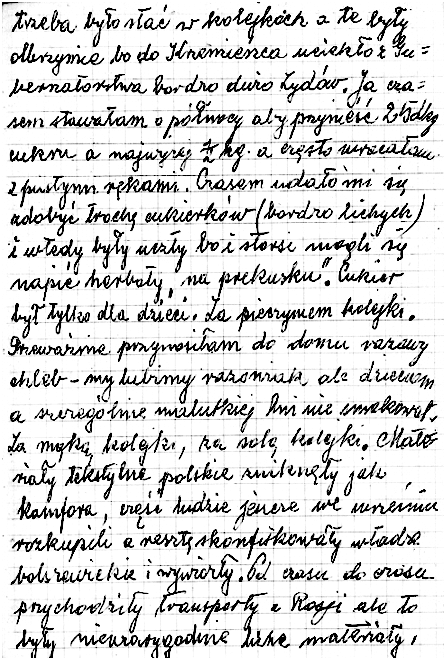 trzeba było stać w kolejkach a te były
olbrzymie bo do Krzemieńca uciekło z Gu=
bernatorstwa bardzo dużo Żydów. Ja cza=
sem stawałam o północy aby przynieść 20 dkg
cukru a najwyżej ½ kg. a często wracałam
z pustymi rękami. Czasem udało mi się
zdobyć trochę cukierków (bardzo lichych)
i wtedy były uczty bo i starsi mogli się
napić herbaty „na prekusku". Cukier
był tylko dla dzieci. Za pieczywem kolejki.
Przeważnie przynosiłam do domu razowy
chleb – my lubimy razowiak, ale dzieciom
a szczególnie malutkiej Ani nie smakował.
Za mąką kolejki, za solą kolejki. Mate=
riały tekstylne polskie zniknęły jak
kamfora, część ludzie jeszcze we wrześniu
rozkupili a resztę skonfiskowały władze
bolszewickie i wywiozły. Od czasu do czasu
przychodziły transporty z Rosji ale to
były nieszczególnie materiały,